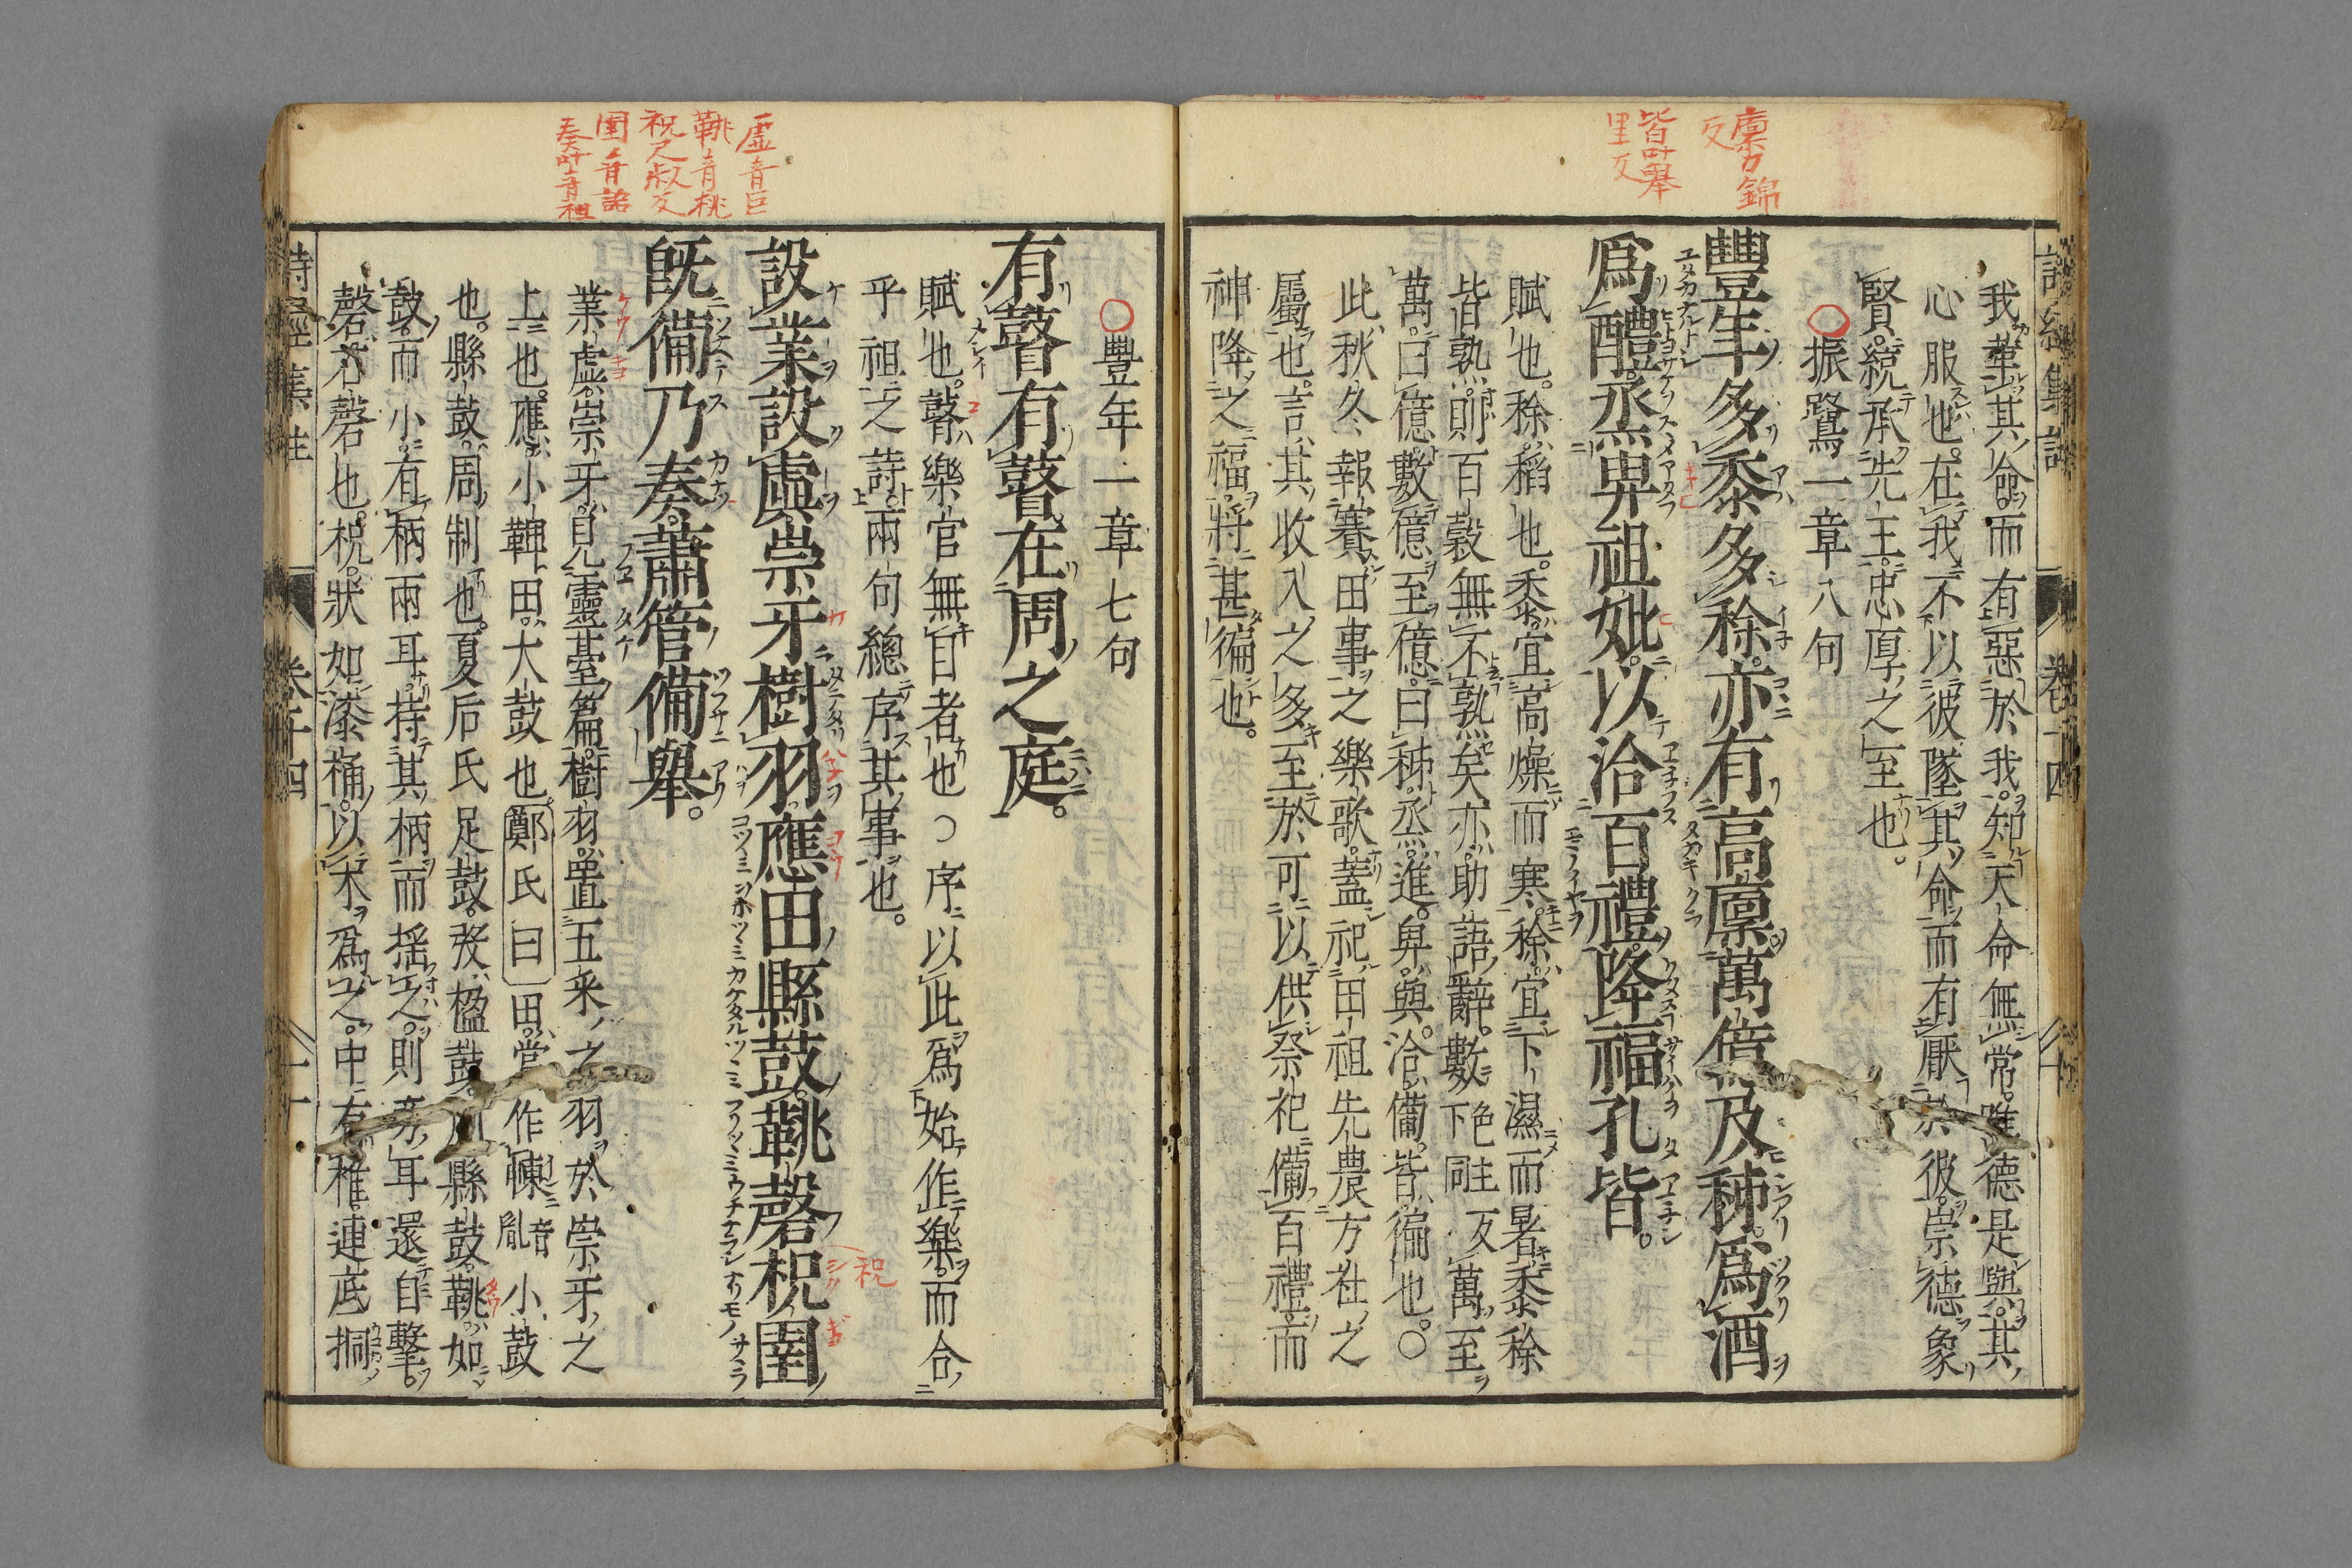 廩力錦
反
皆叶舉
里反
我革其命而有惡於我知天命無常惟德是與其
心服也在我不以彼墜其命而有厭於彼崇德象
賢統承先王忠厚之至也。
○振鷺一章八句
豐年多黍多稌亦有高廩萬億及秭爲酒
爲醴烝畀祖妣以洽百禮降福孔皆。
賦也稌稻也黍宜高燥而寒稌宜下濕而暑黍稌
皆熟則百穀無不熟矣亦助語辭數色主反萬至
萬曰億數億至億曰秭烝進畀與洽備皆徧也。○
此秋冬報賽田事之樂歌蓋祀田祖先農方社之
屬也言其收入之多至於可以供祭祀備百禮而
神降之福將甚徧也。
詩經集註 卷十四
虡音巨
鞉音桃
柷尺叔反
圉音語
奏叶音祖
○豐年一章七句
有瞽有瞽在周之庭。
賦也瞽樂官無目者也○序以此爲始作樂而合
乎祖之詩兩句總序其事也。
設業設虡崇牙樹羽應田縣鼓鞉磬柷圉
柷
既備乃奏簫管備舉。
業虡崇牙見靈臺篇樹羽置五采之羽於崇牙之
上也應小鞞田大鼓也鄭氏曰田當作朄音胤小鼓
也縣鼓周制也夏后氏足鼓殷楹鼓周縣鼓鞉如
鼓而小有柄兩耳持其柄而搖之則旁耳還自擊
磬石磬也柷狀如漆桶以木爲之中有椎連底挏
詩經集註 卷十四 十一